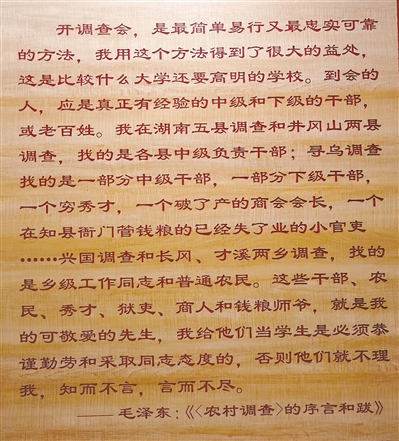 开调查会，是最简单易行又最忠实可靠
的方法，我用这个方法得到了很大的益处，
这是比较什么大学还要高明的学校。到会的
人，应是真正有经验的中级和下级的干部，
或老百姓。我在湖南五县调查和井冈山两县
调查，找的是各县中级负责干部；寻乌调查
找的是一部分中级干部，一部分下级干部，
一个穷秀才，一个破了产的商会会长，一个
在知县衙门管钱粮的已经失了业的小官吏
……兴国调查和长冈、才溪两乡调查，找的
是乡级工作同志和普通农民。这些干部、农
民、秀才、狱吏、商人和钱粮师爷，就是我
的可敬爱的先生，我给他们当学生是必须恭
谨勤劳和采取同志态度的，否则他们就不理
我，知而不言，言而不尽。
——毛泽东：《〈农村调查〉的序言和跋》